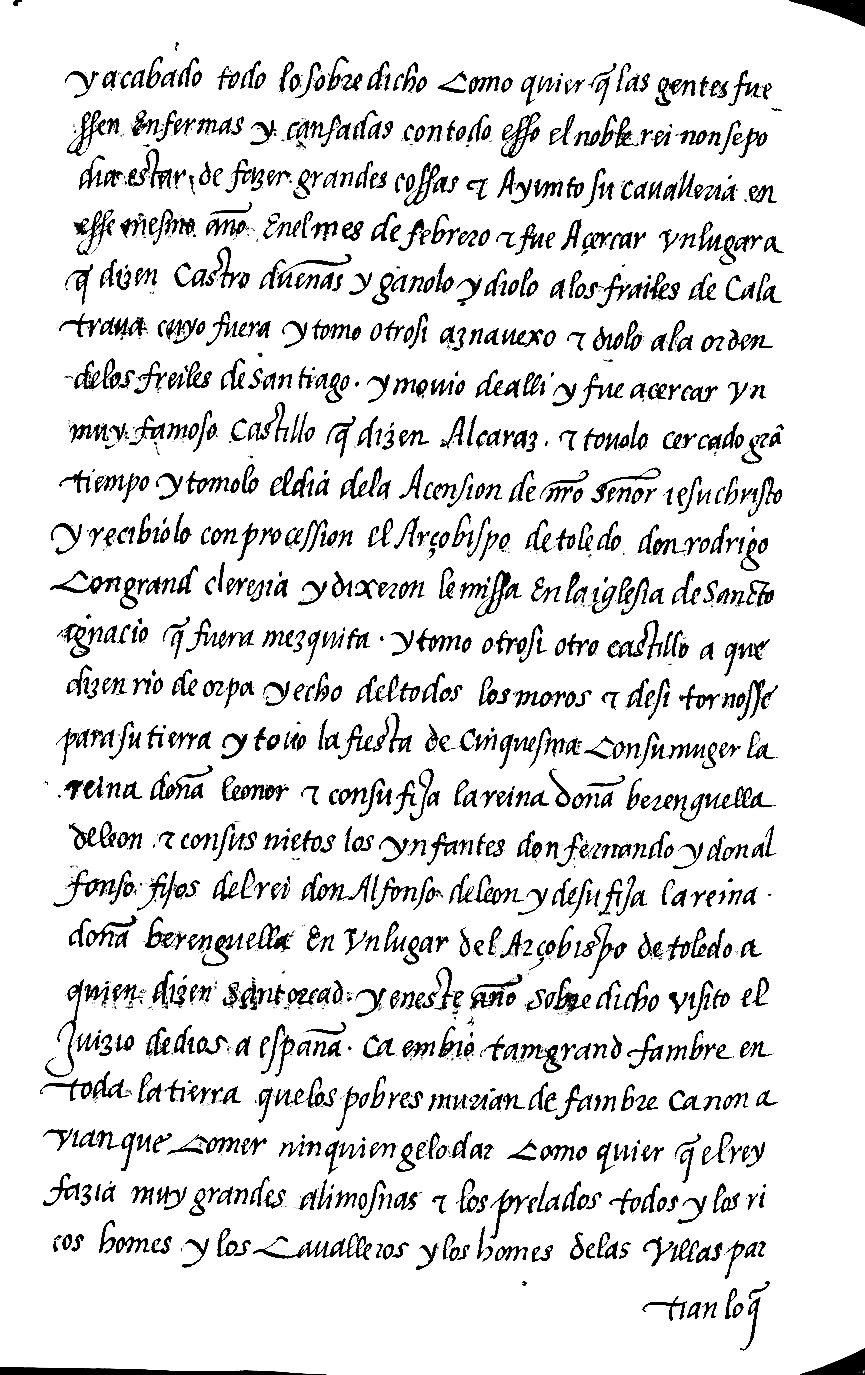 y acabado todo lo sobre dicho Como quier q̃ las gentes fue
ssen Enfermas y cansadas con todo esso el noble rei non se po
dia estar de fazer grandes cossas ⁊ Ayunto su cavalleria en
esse mesmo año En el mes de febrero ⁊ fue Açercar vn lugar a
q̃ dizen Castro dueñas y ganolo y diolo a los frailes de Cala
traua cuyo fuera y tomo otrosi aznavexo ⁊ diolo a la orden
de los freiles de Santiago. y movio de alli y fue acercar vn
muy famoso Castillo q̃ dizen Alcaraz. ⁊ tovolo cercado grã
tiempo y tomolo el dia de la Acension de nr̃o Señor iesu christo
y recibiolo con procession el Arçobispo de toledo don rodrigo
Con grand clerezia y dixeron le missa En la iglesia de Sancto
ignacio q̃ fuera mezquita. y tomo otrosi otro castillo a que
dizen rio de orpa y echo del todos los moros ⁊ desi tornosse
para su tierra y tovo la fiesta de Cinquesma Con su muger la
reina doña leonor ⁊ con su fija la reina doña berenguella
de leon ⁊ con sus nietos los ynfantes don fernando y don al
fonso fijos del rei don Alfonso de leon y de su fija la reina.
doña berenguella En vn lugar del Arçobispo de toledo a
quien dizen Santorcad. y en este año sobre dicho visito el
Juizio de dios a españa. Ca embio tam grand fambre en
toda la tierra que los pobres murian de fambre Ca non a
vian que Comer nin quien gelo dar Como quier q̃ el rey
fazia muy grandes alimosnas ⁊ los prelados todos y los ri
cos homes y los Cavalleros y los homes de las villas par
tian lo q̃